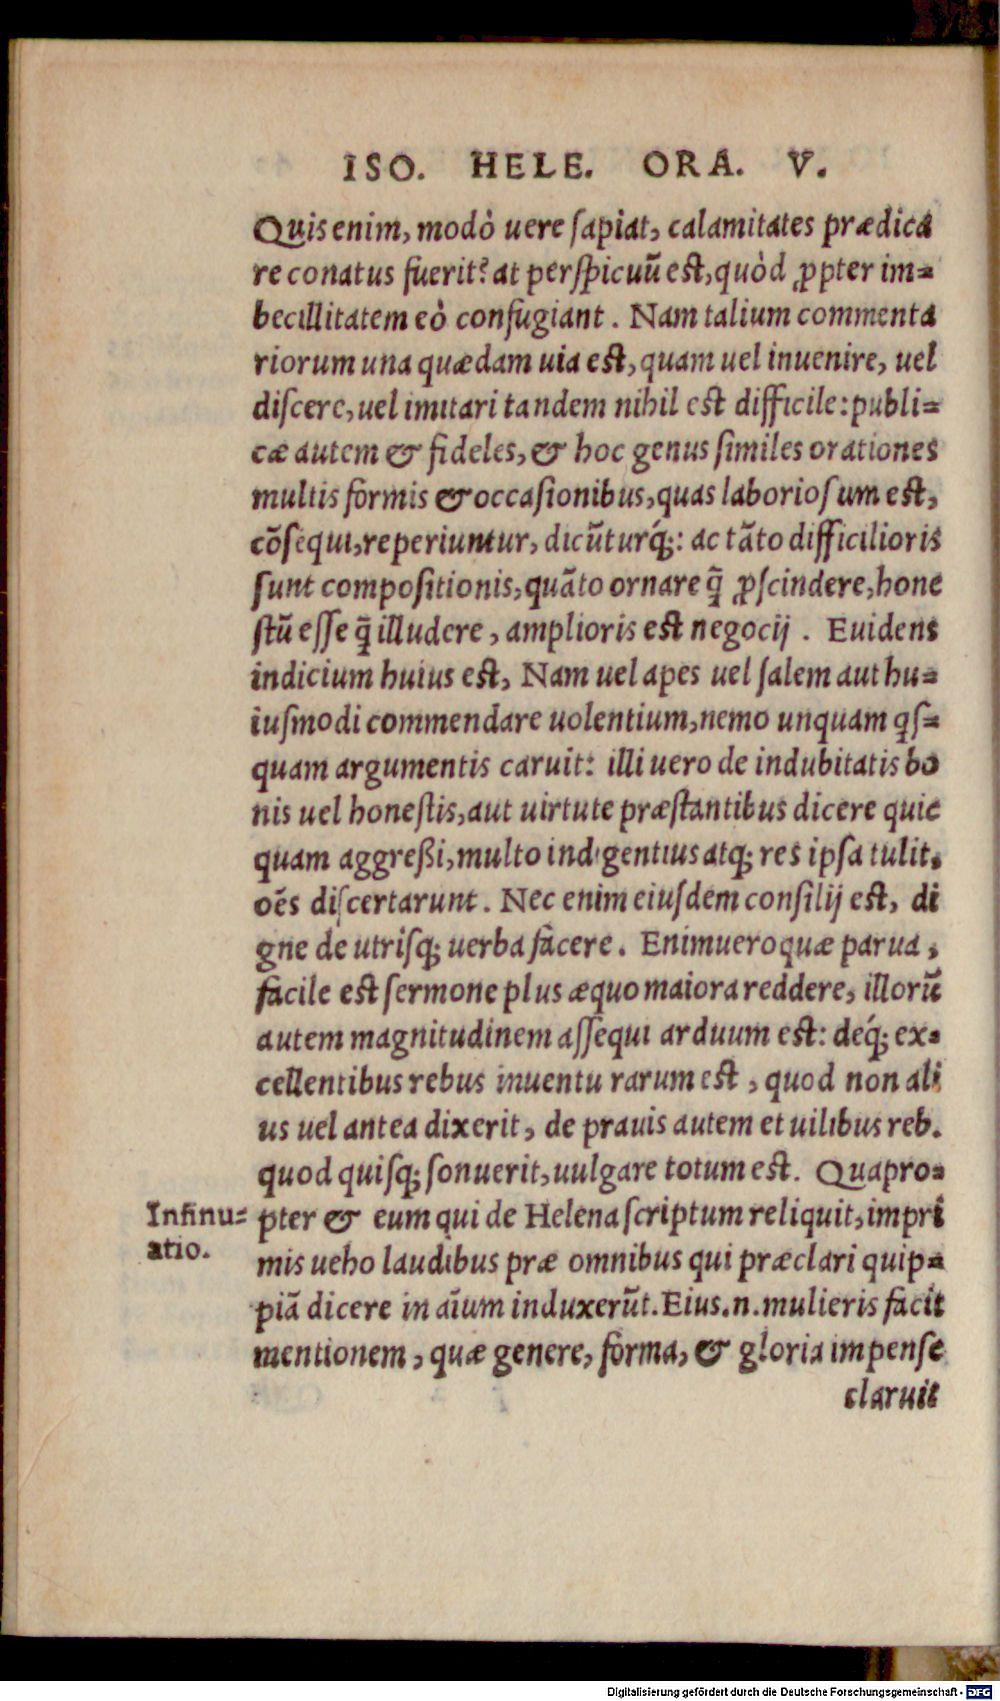 ISO. HELE. ORA. V.
Quis enim, modò uere ſapiat, calamitates prædica
re conatus fuerit? at perſpicuũ est, quòd ꝓpter im=
becillitatem eò confugiant. Nam talium commenta
riorum una quædam uia est, quam uel inuenire, uel
diſcere, uel imitari tandem nihil est difficile: publi=
cæ autem & fideles, & hoc genus ſimiles orationes
multis formis & occaſionibus, quas laborioſum est,
cõſequi, reperiuntur, dicũturq́;: ac tãto difficilioris
ſunt compoſitionis, quãto ornare q̃ ꝓſcindere, hone
ſtũ eſſe q̃ illudere, amplioris est negocij. Euidens
indicium huius est, Nam uel apes uel ſalem aut hu=
iuſmodi commendare uolentium, nemo unquam qſ=
quam argumentis caruit: illi uero de indubitatis bo
nis uel honeſtis, aut uirtute præſtantibus dicere quic
quam aggreßi, multo indigentius atq; res ipſa tulit,
oẽs diſcertarunt. Nec enim eiuſdem conſilij est, di
gne de utriſq; uerba facere. Enimuero quæ parua,
facile est ſermone plus æquo maiora reddere, illorũ
autem magnitudinem aſſequi arduum est: deq́; ex=
cellentibus rebus inuentu rarum est, quod non ali
us uel antea dixerit, de prauis autem et uilibus reb.
quod quiſq; ſonuerit, uulgare totum est. Quapro=
Inſinu=
atio.
pter & eum qui de Helena ſcriptum reliquit, imprî
mis ueho laudibus præ omnibus qui præclari quip=
piã dicere in aĩum induxerũt. Eius.n. mulieris facit
mentionem, quæ genere, forma, & gloria impenſe
claruit
Digitalisierung gefördert durch die Deutsche Forschungsgemeinschaft - DFG